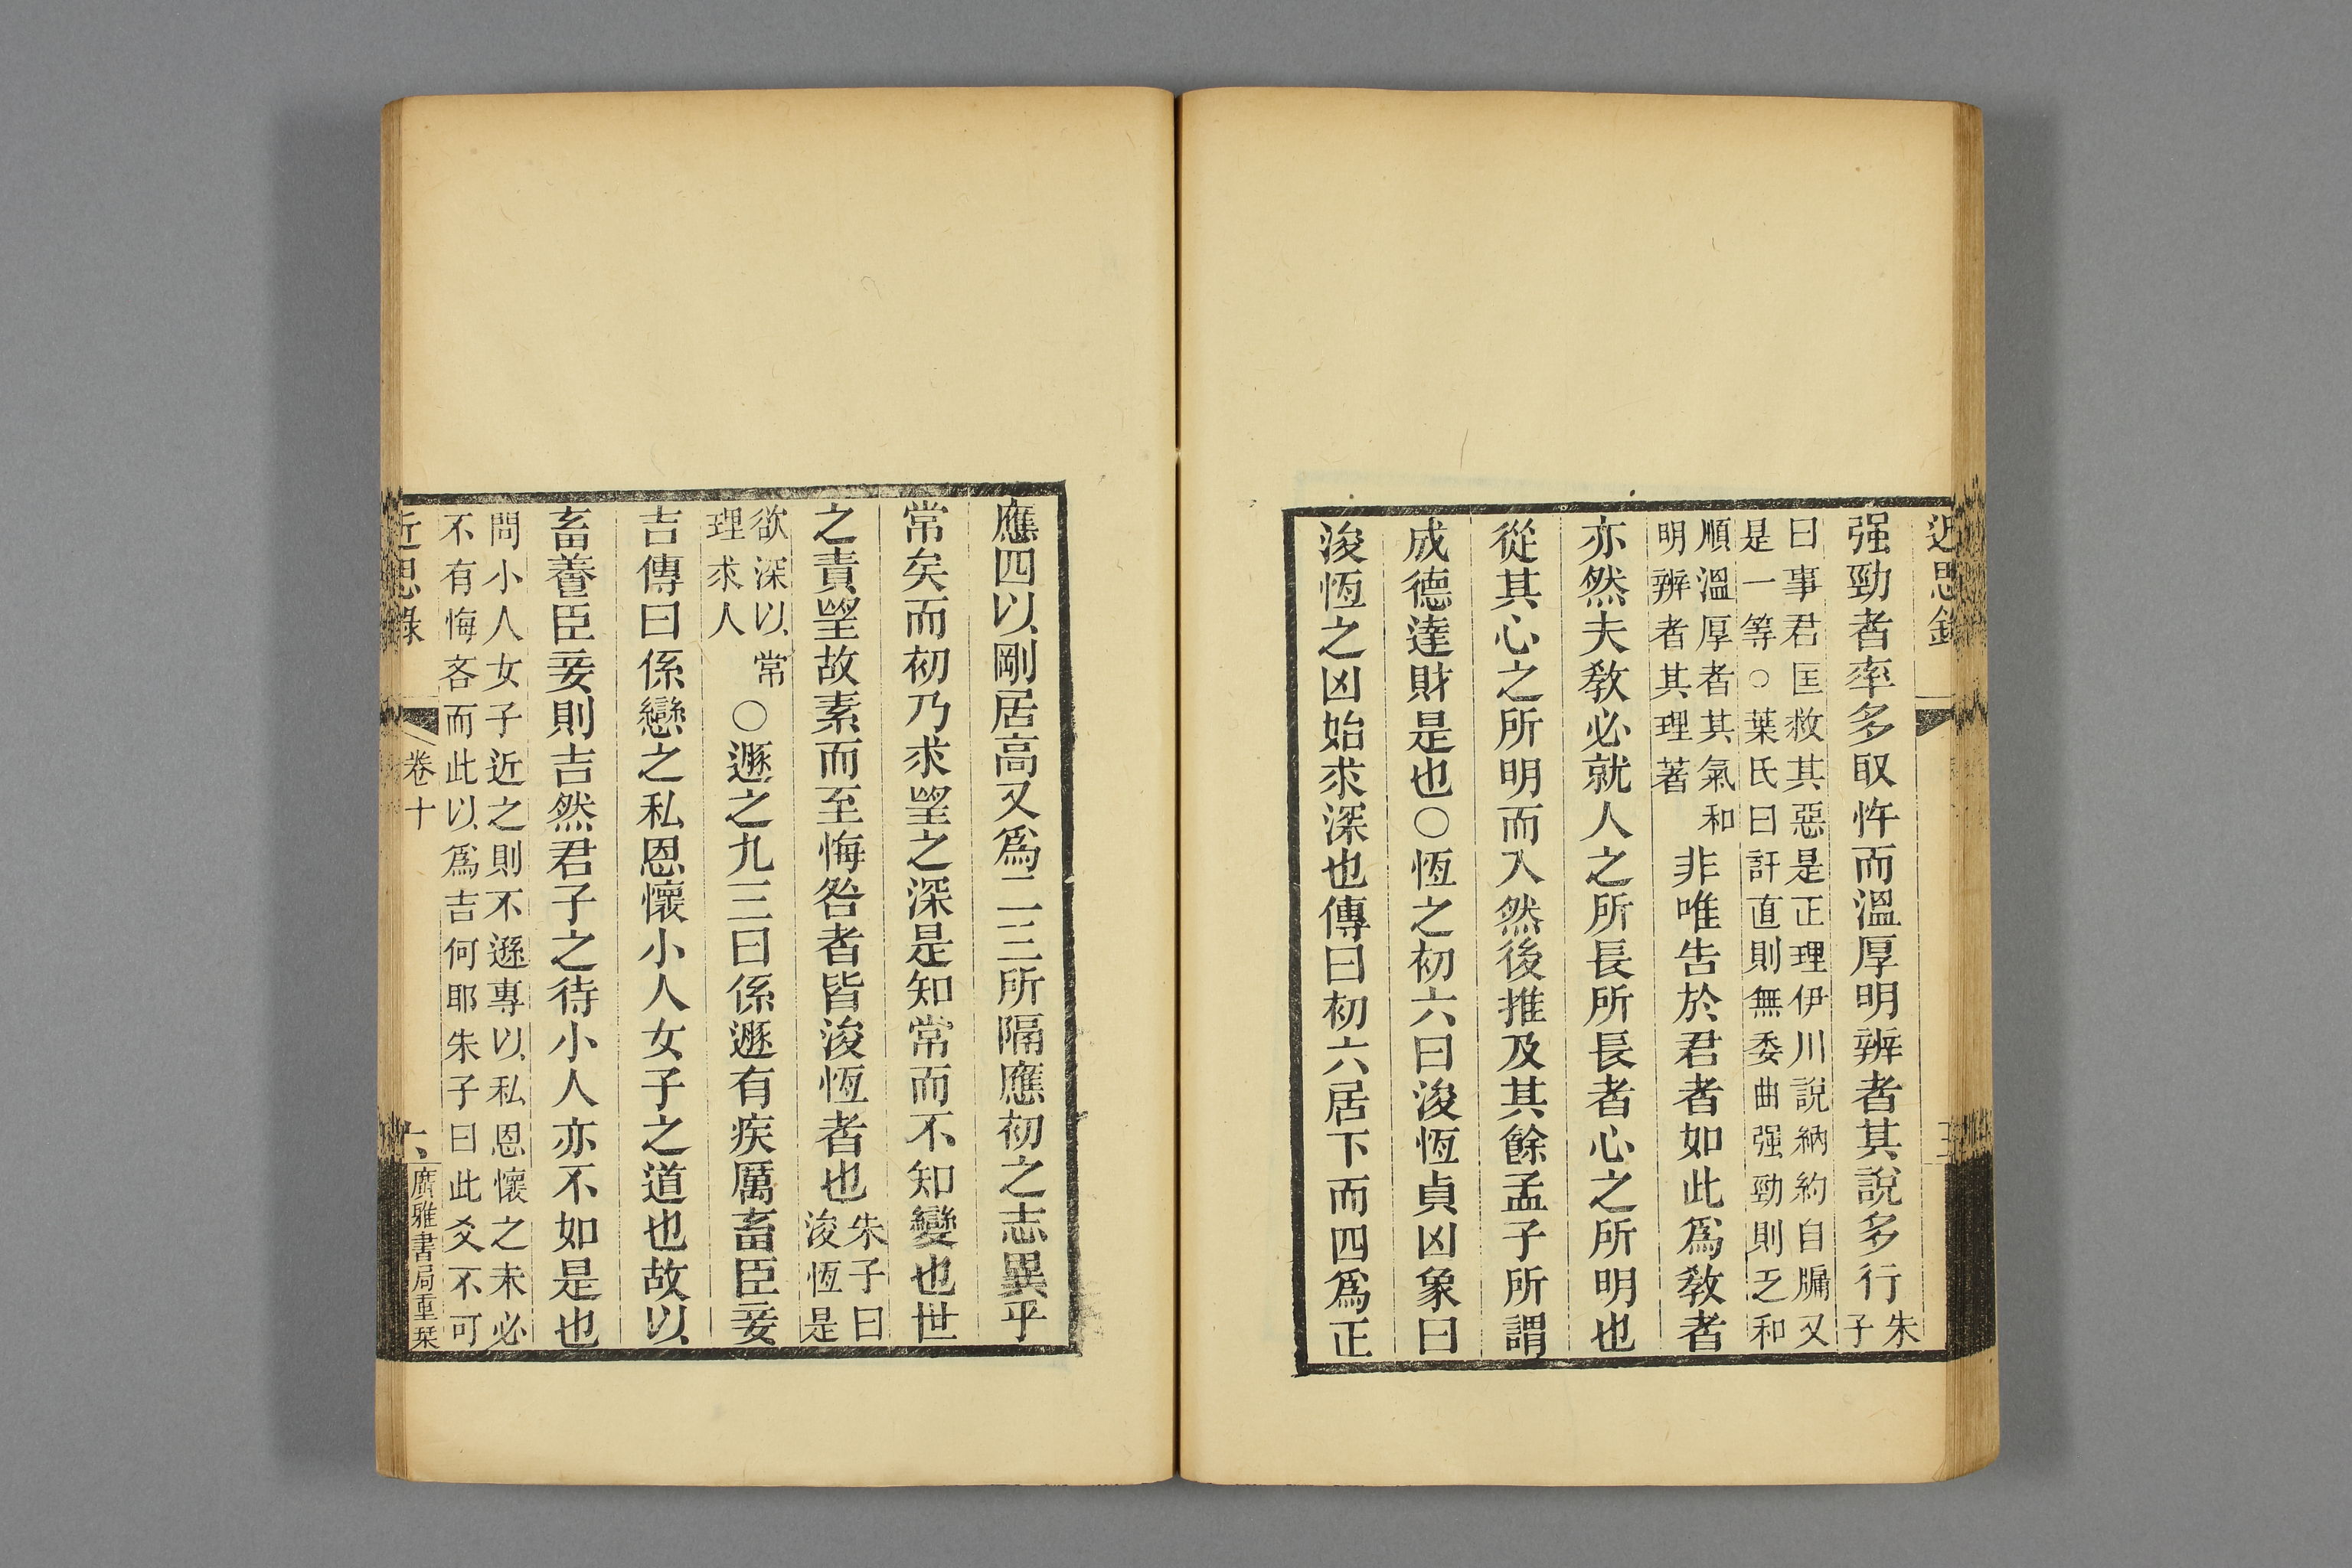 近思錄
强勁者率多取忤而溫厚明辨者其說多行朱
子
曰事君匡救其惡是正理伊川說納約自牖又
是一等○葉氏曰訐直則無委曲强勁則乏和
順溫厚者其氣和
明辨者其理著
非唯告於君者如此爲敎者
亦然夫敎必就人之所長所長者心之所明也
從其心之所明而入然後推及其餘孟子所謂
成德達財是也○恆之初六曰浚恆貞凶象曰
浚恆之凶始求深也傳曰初六居下而四爲正
應四以剛居高又爲二三所隔應初之志異乎
常矣而初乃求望之深是知常而不知變也世
之責望故素而至悔咎者皆浚恆者也朱子曰
浚恆是
欲深以常
理求人
○遯之九三曰係遯有疾厲畜臣妾
吉傳曰係戀之私恩懷小人女子之道也故以
畜養臣妾則吉然君子之待小人亦不如是也
問小人女子近之則不遜專以私恩懷之未必
不有悔吝而此以爲吉何耶朱子曰此爻不可
近思錄
卷十
六
廣雅書局重栞